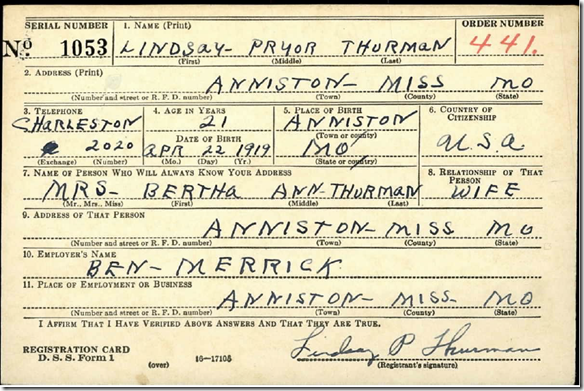 SERIAL NUMBER 1. NAME (Print) ORDER NUMBER
No 1053 LINDSAY- PRYOR THURMAN 441.
(First) (Middle) (Last)
2. ADDRESS (Print)
ANNISTON- MISS MO
(Number and street or R. F. D. number) (Town) (County) (State)
3. TELEPHONE 4. AGE IN YEARS 5. PLACE OF BIRTH 6. COUNTRY OF CITIZENSHIP
CHARLESTON 21 ANNISTON
(Town or county)
DATE OF BIRTH
2020 APR 22 1919 MO U.S.A
(Exchange) (Number) (Mo.) (Day) (Yr.) (State or country)
7. NAME OF PERSON WHO WILL ALWAYS KNOW YOUR ADDRESS 8. RELATIONSHIP OF THAT PERSON
MRS- BERTHA ANN-THURMAN WIFE
(Mr., Mrs., Miss) (First) (Middle) (Last)
9. ADDRESS OF THAT PERSON
ANNISTON- MISS MO
(Number and street or R. F. D. number) (Town) (County) (State)
10. EMPLOYER'S NAME
BEN- MERRICK
11. PLACE OF EMPLOYMENT OR BUSINESS
ANNISTON- MISS- MO
(Number and street or R. F. D. number) (Town) (County) (State)
I AFFIRM THAT I HAVE VERIFIED ABOVE ANSWERS AND THAT THEY ARE TRUE.
REGISTRATION CARD
D. S. S. Form 1 (over) 16-17105 Lindsay P Thurman
(Registrant's signature)